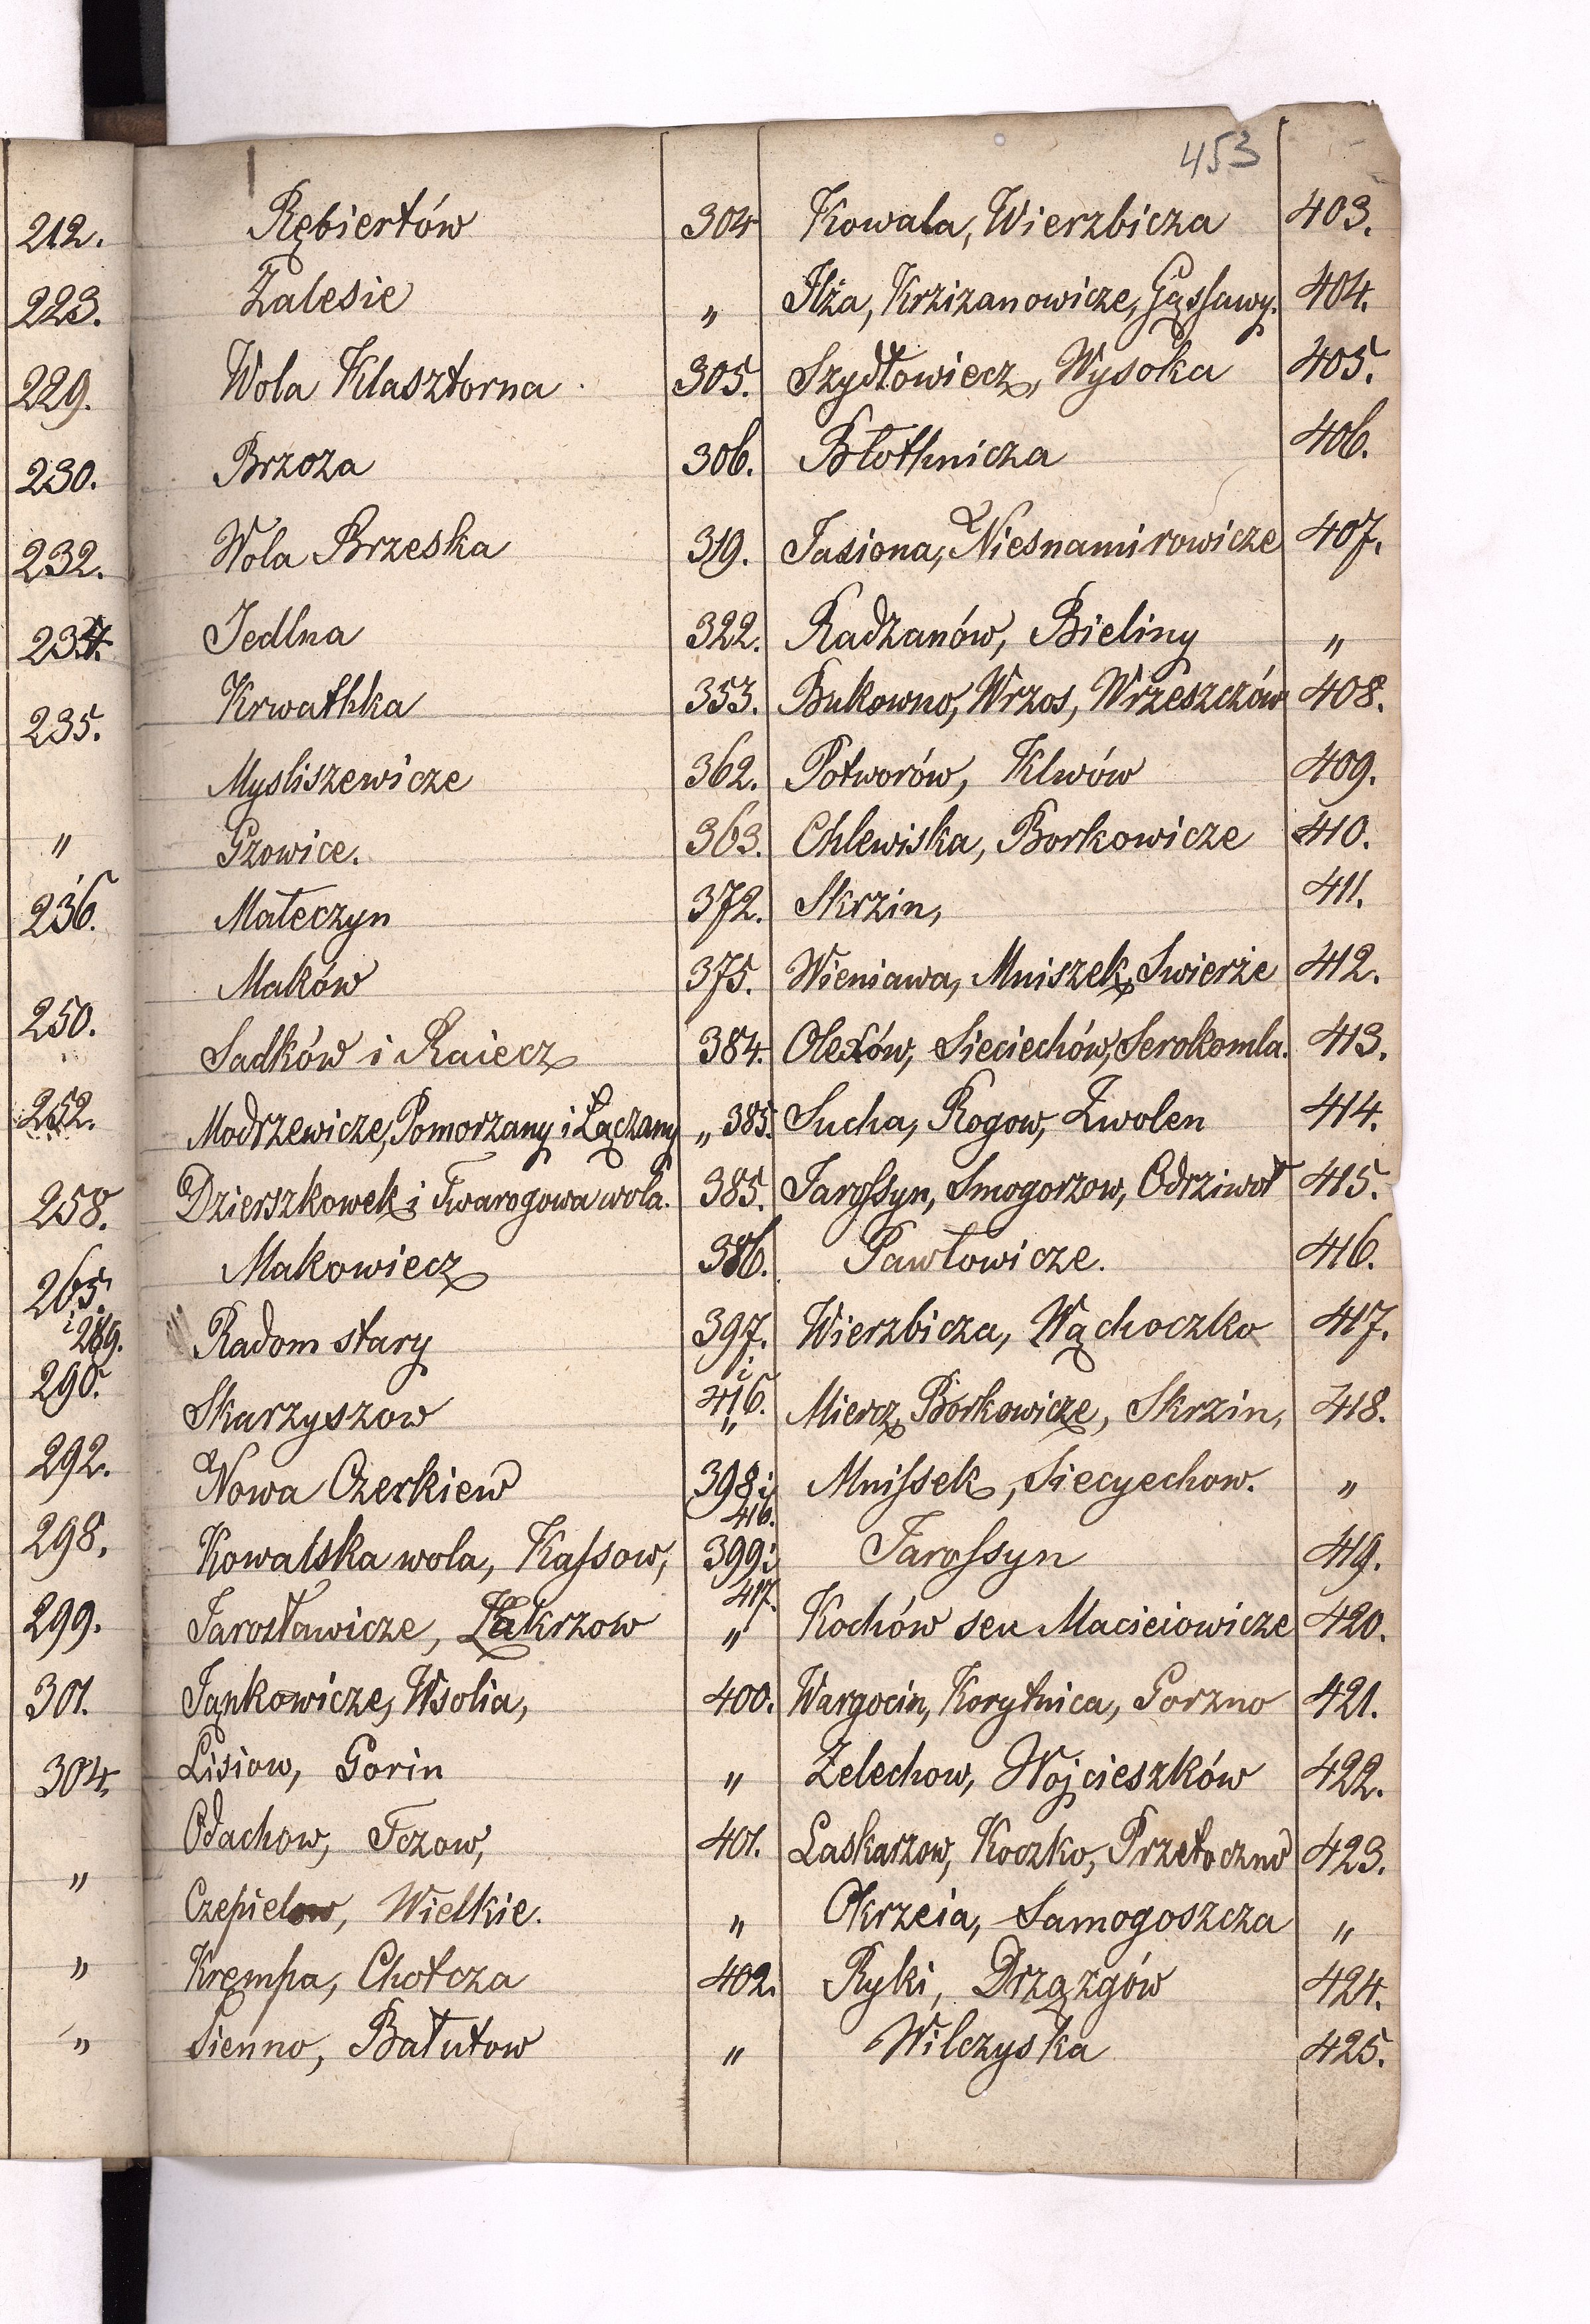 453
212. Rębiertów 304 Kowala, Wierzbicza 403.
223. Zalesie „ Ilża, Krzizanowicze, Gąssawy. 404.
229. Wola Klasztorna 305. Szydłowiecz, Wysoka 405.
230. Brzoza 306. Błothnicza 406.
232. Wola Brzeska 319. Jasiona, Niesnamirowicze 407.
234. Jedlna 322. Radzanów, Bieliny „
235. Krwathka 353. Bukowno, Wrzos, Wrzeszczów 408.
Mysliszewicze 362. Potworów, Klwów 409.
„ Gzowice. 363. Chlewiska, Borkowicze 410.
236. Małeczyn 372. Skrzin, 411.
Maków 375. Wieniawa, Mniszek, Swierże 412.
250. Sadków i Raiecz 384. Olexów, Sieciechów, Serokomla. 413.
252. Modrzewicze, Pomorzany i Łączany „ 385. Sucha, Rogow, Zwolen 414.
258. Dzierszkowek i Twarogowa wola. 385. Jarossyn, Smogorzow, Odrziwoł 415.
265. Makowiecz 386. Pawłowicze. 416.
i 289. Radom stary 397. Wierzbicza, Wąchoczko 417.
i
290. Skarzyszow 416. Miercz, Borkowicze, Skrzin, 418.
„
292. Nowa Czerkiew 398 i Mnissek, Siecyechow. „
416.
298. Kowalska wola, Kassow, 399 i Jarossyn 419.
417.
299. Jarosławicze, Zakrzow „ Kochów seu Macieiowicze 420.
301. Jankowicze, Wsolia, 400. Wargocin, Korytnica, Gorzno 421.
304. Lisiow, Gorin „ Zelechow, Wojcieszków 422.
„ Odachow, Tczow, 401. Laskarzow, Koczko, Przetoczno 423.
Czepielow, Wielkie. „ Okrzeia, Samogoszcza „
„ Krempa, Chotcza 402. Ryki, Drzązgów 424.
„ Sienno, Bałutow „ Wilczyska 425.